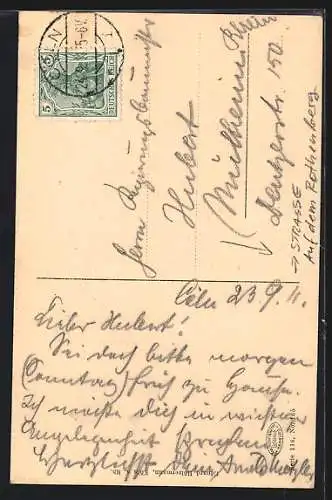 CÖLN
1
5-6V.
5
DEUTSCHES REICH
Herrn Regierungsbaumeister
Hubert
Mülheim Rhein
Deutzerstr. 150.
→ STRASSE
Auf dem Rothenberg
Cöln 23.9.11.
Lieber Hubert!
Sei doch bitte morgen
(Sonntag) früh zu Hause.
Ich möchte dich in wichtiger
Angelegenheit sprechen
Herzlichst Dein